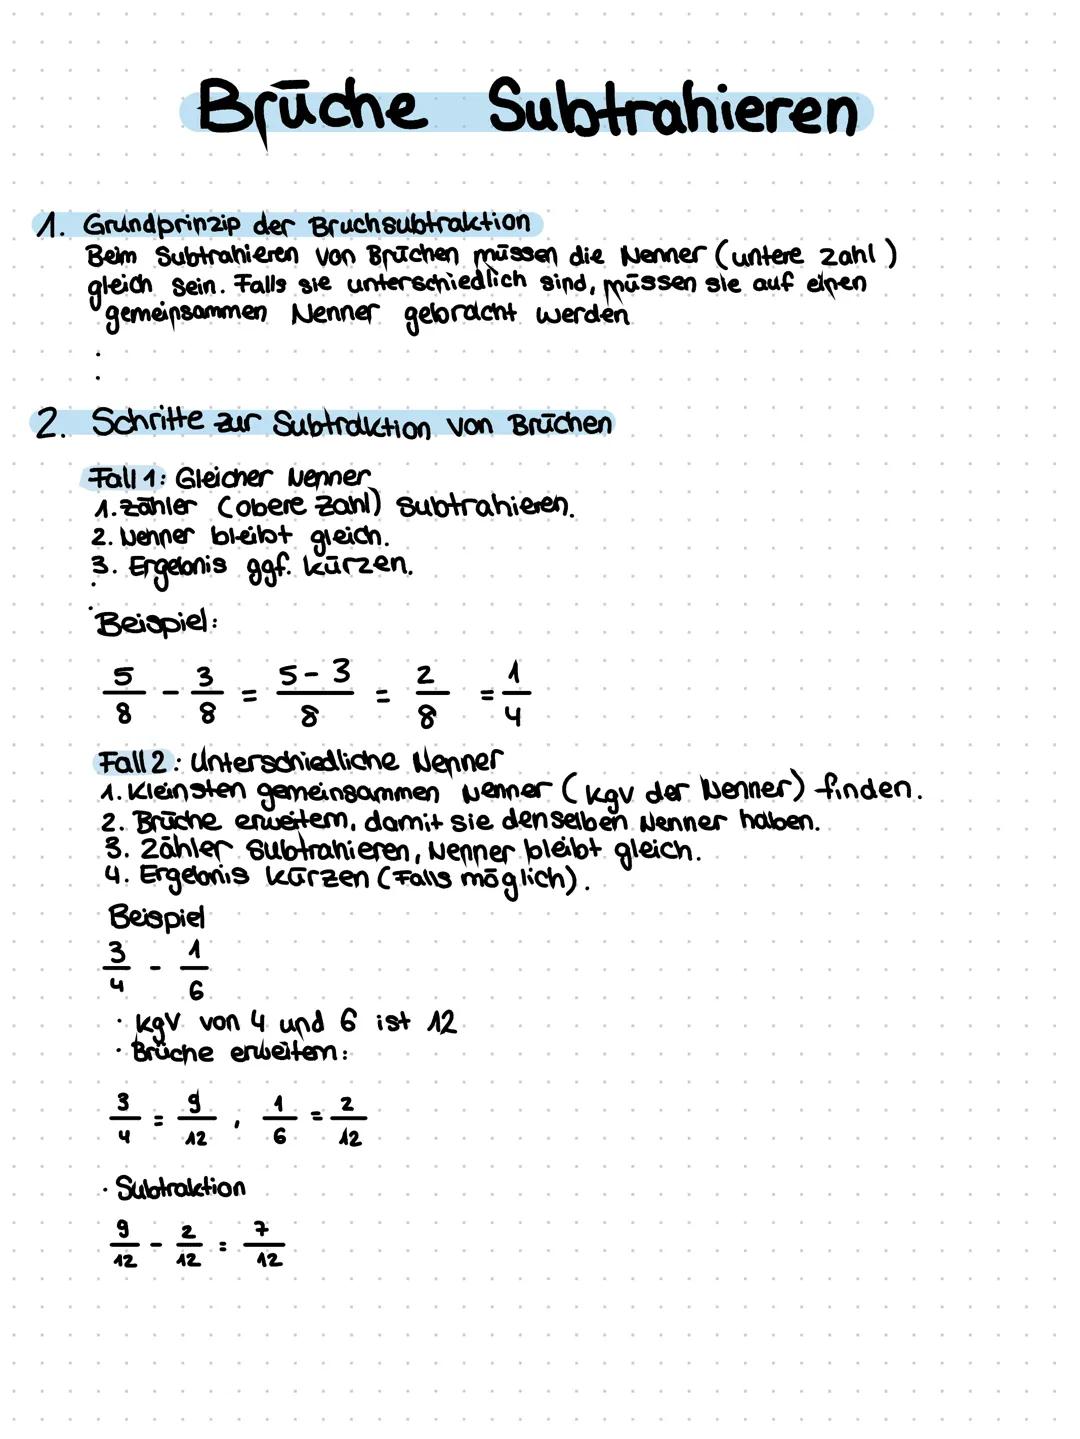 Brüche Subtrahieren
1. Grundprinzip der Bruchsubtraktion
Beim Subtrahieren von Brüchen müssen die Nenner (untere Zahl)
gleich sein. Falls sie unterschiedlich sind, müssen sie auf einen
gemeinsammen Nenner gebracht werden
2. Schritte zur Subtraktion von Brüchen
Fall 1: Gleicher Nenner
1. Zähler (obere Zahl) subtrahieren.
2. Nenner bleibt gleich.
3. Ergebnis ggf. kürzen.
Beispiel:
5/8 - 3/8 = (5-3)/8 = 2/8 = 1/4
Fall 2: Unterschiedliche Nenner
1. Kleinsten gemeinsammen Nenner (kgV der Nenner) finden.
2. Brüche erweitern, damit sie denselben Nenner haben.
3. Zähler subtrahieren, Nenner bleibt gleich.
4. Ergebnis kürzen (Falls möglich).
Beispiel
3/4 - 1/6
· kgV von 4 und 6 ist 12
· Brüche erweitern:
3/4 = 9/12, 1/6 = 2/12
· Subtraktion
9/12 - 2/12 = 7/12